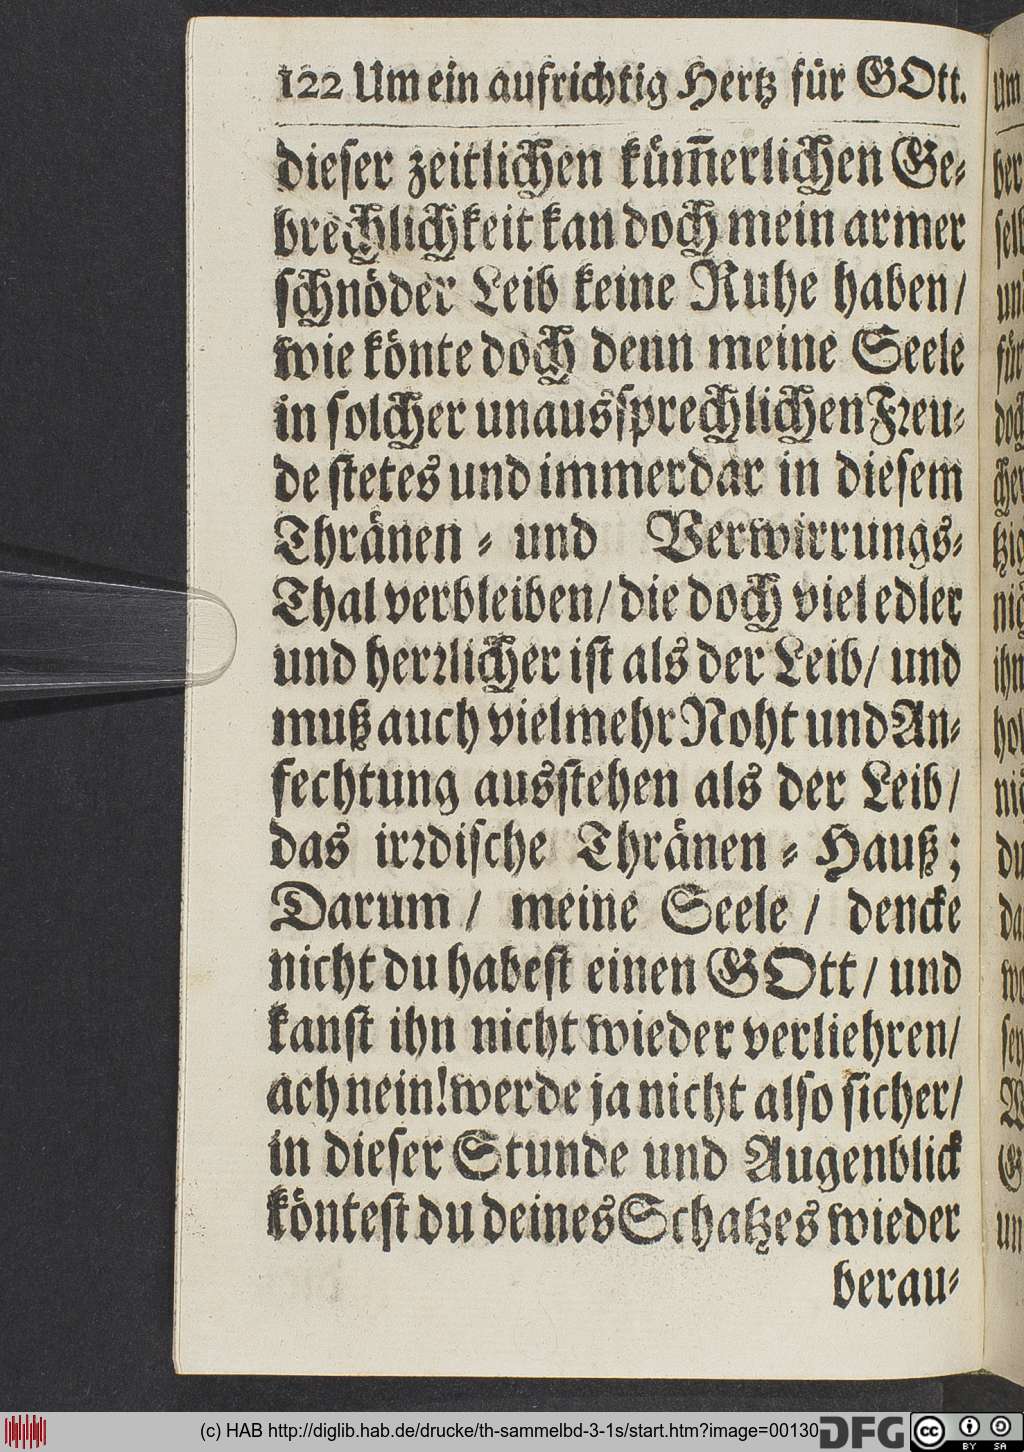 122 Um ein aufrichtig Hertz für GOtt.
dieser zeitlichen küm̃erlichen Ge-
brechlichkeit kan doch mein armer
schnöder Leib keine Ruhe haben/
wie könte doch denn meine Seele
in solcher unaussprechlichen Freu-
de stetes und immerdar in diesem
Thränen- und Verwirrungs-
Thal verbleiben/ die doch viel edler
und herrlicher ist als der Leib/ und
muß auch vielmehr Noht und An-
fechtung ausstehen als der Leib/
das irrdische Thränen-Hauß;
Darum/ meine Seele/ dencke
nicht du habest einen GOtt/ und
kanst ihn nicht wieder verliehren/
ach nein! werde ja nicht also sicher/
in dieser Stunde und Augenblick
köntest du deines Schatzes wieder
berau-
(c) HAB http://diglib.hab.de/drucke/th-sammelbd-3-1s/start.htm?image=00130
DFG
cc BY SA